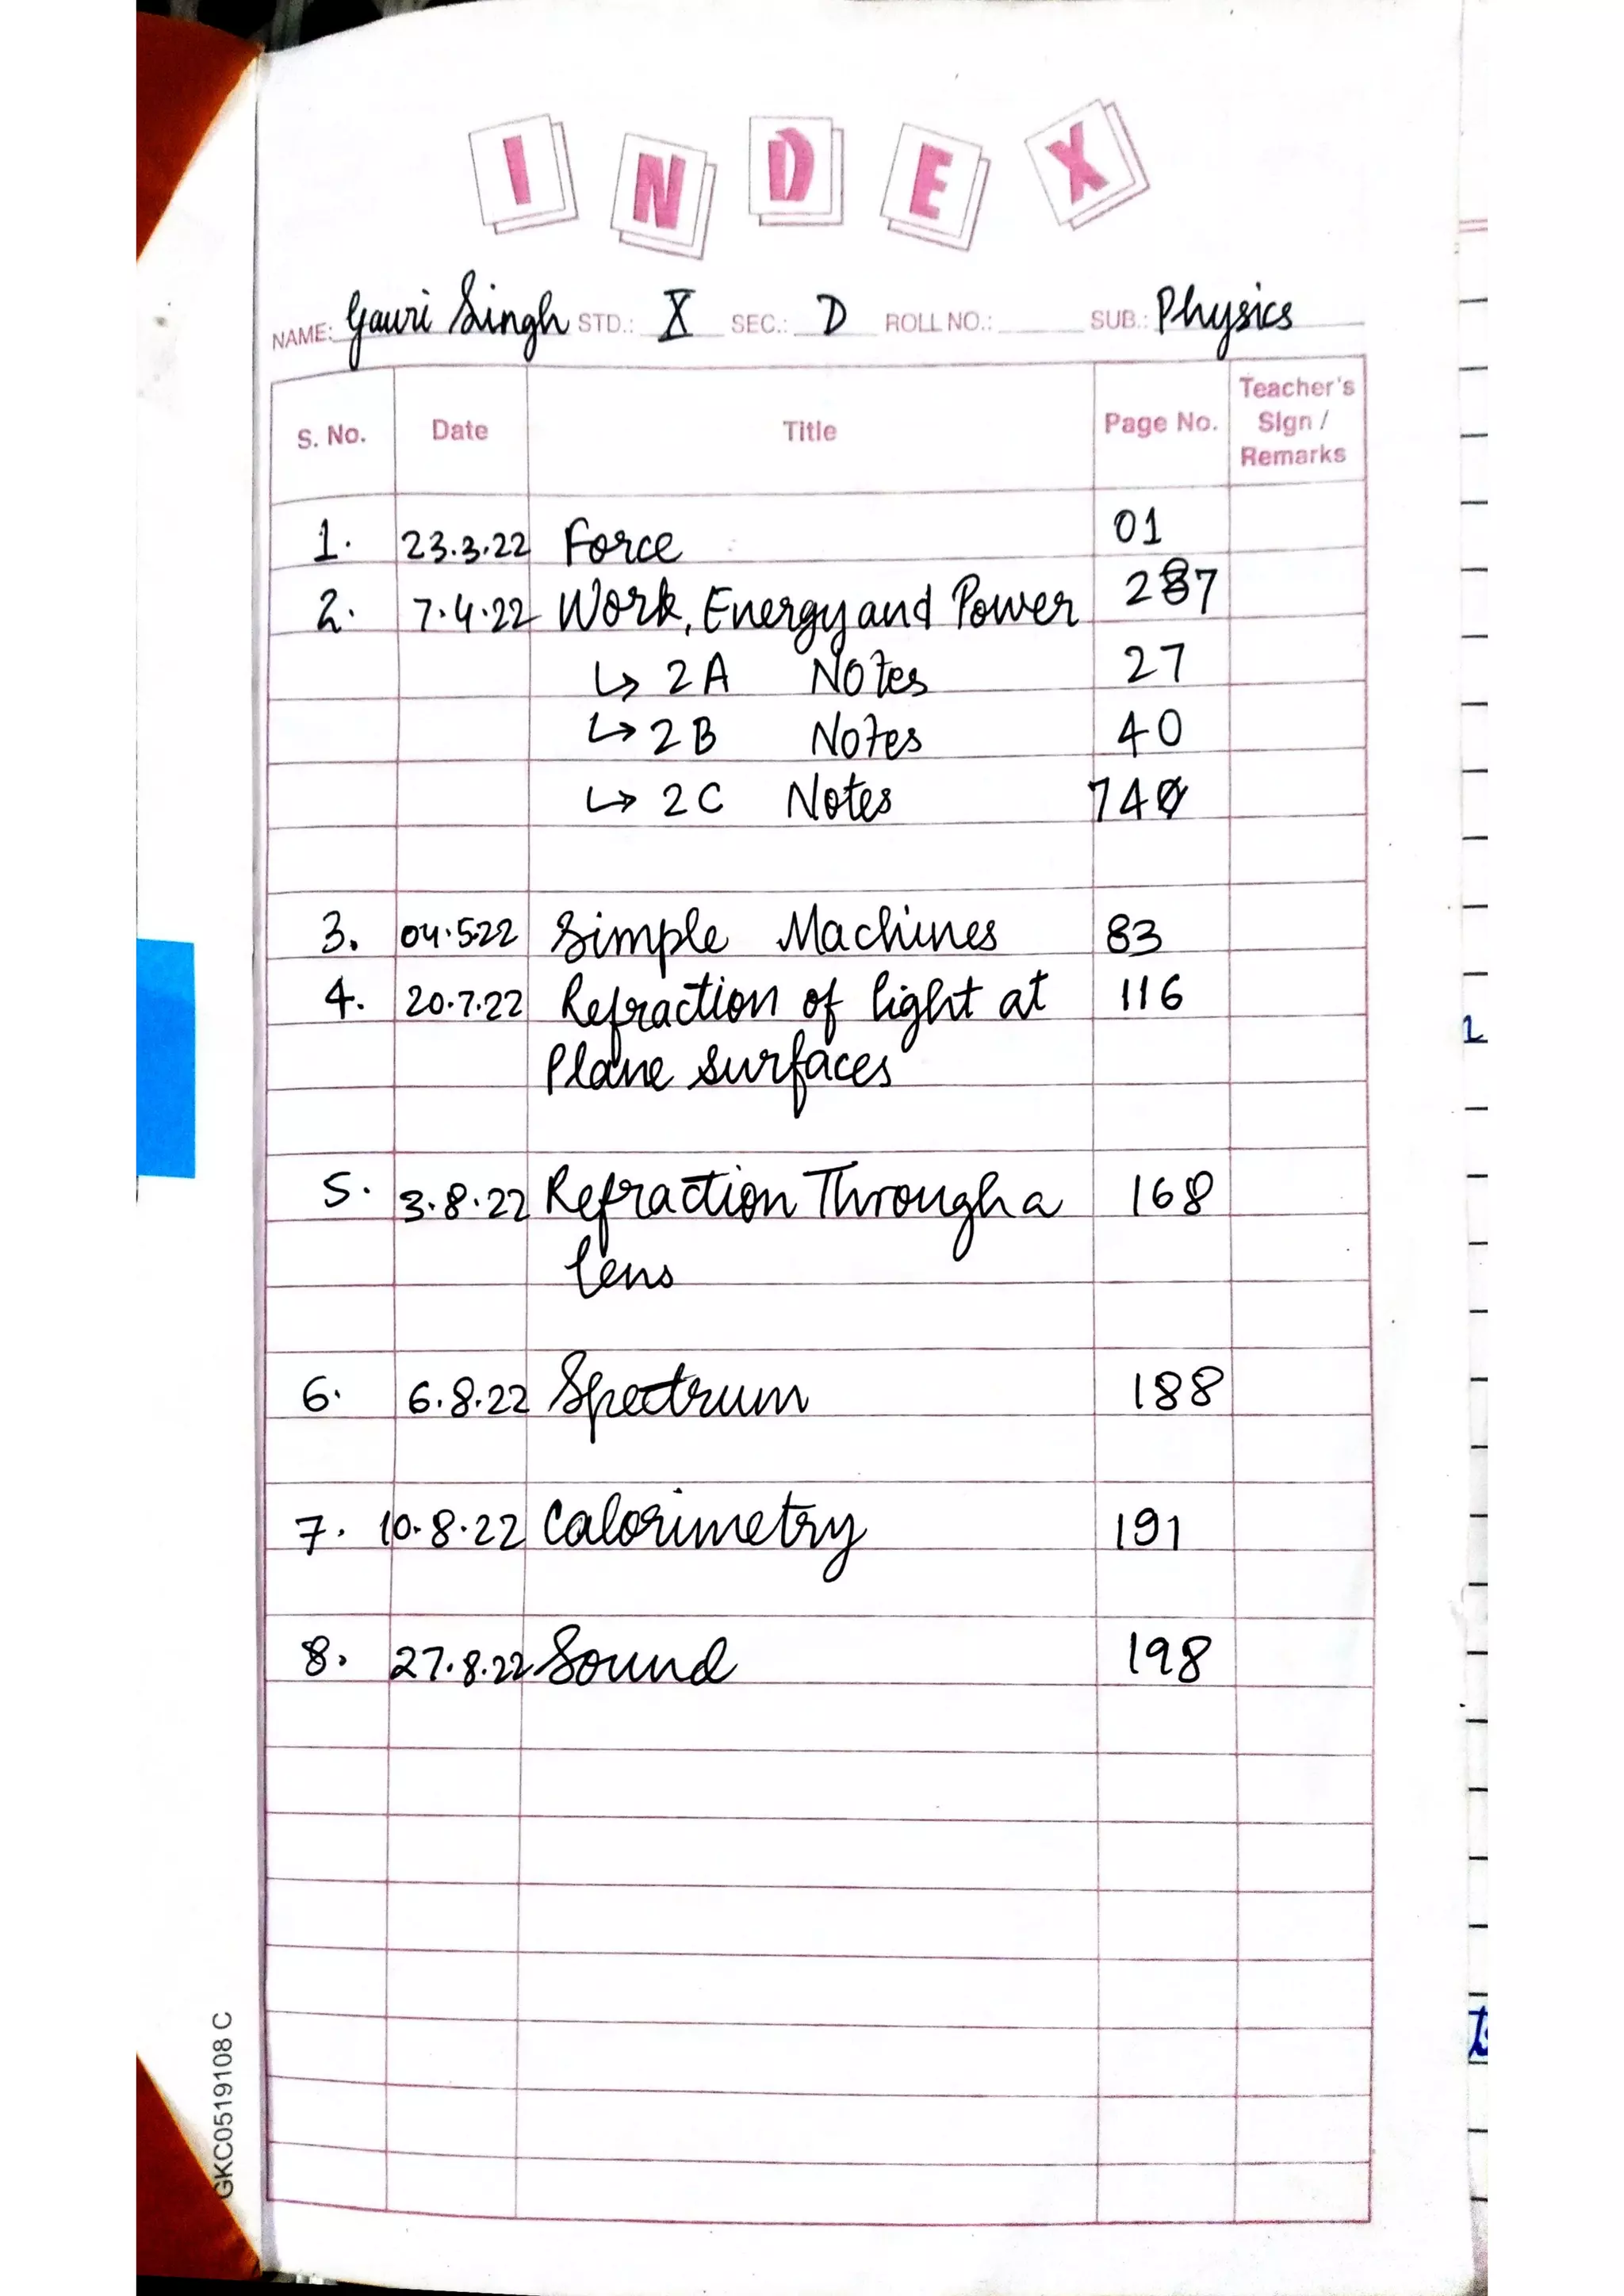 INDEX
NAME: Gauri Singh STD.: X SEC.: D ROLL NO.: SUB.: Physics
S. No. Date Title Page No. Teacher's Sign / Remarks
1. 23.3.22 Force 01
2. 7.4.22 Work, Energy and Power 27
↳ 2A Notes 27
↳ 2B Notes 40
↳ 2C Notes 74
3. 04.5.22 Simple Machines 83
4. 20.7.22 Refraction of light at 116
Plane surfaces
5. 3.8.22 Refraction Through a 168
lens
6. 6.8.22 Spectrum 188
7. 10.8.22 Calorimetry 191
8. 27.8.22 Sound 198
GKC0519108 C